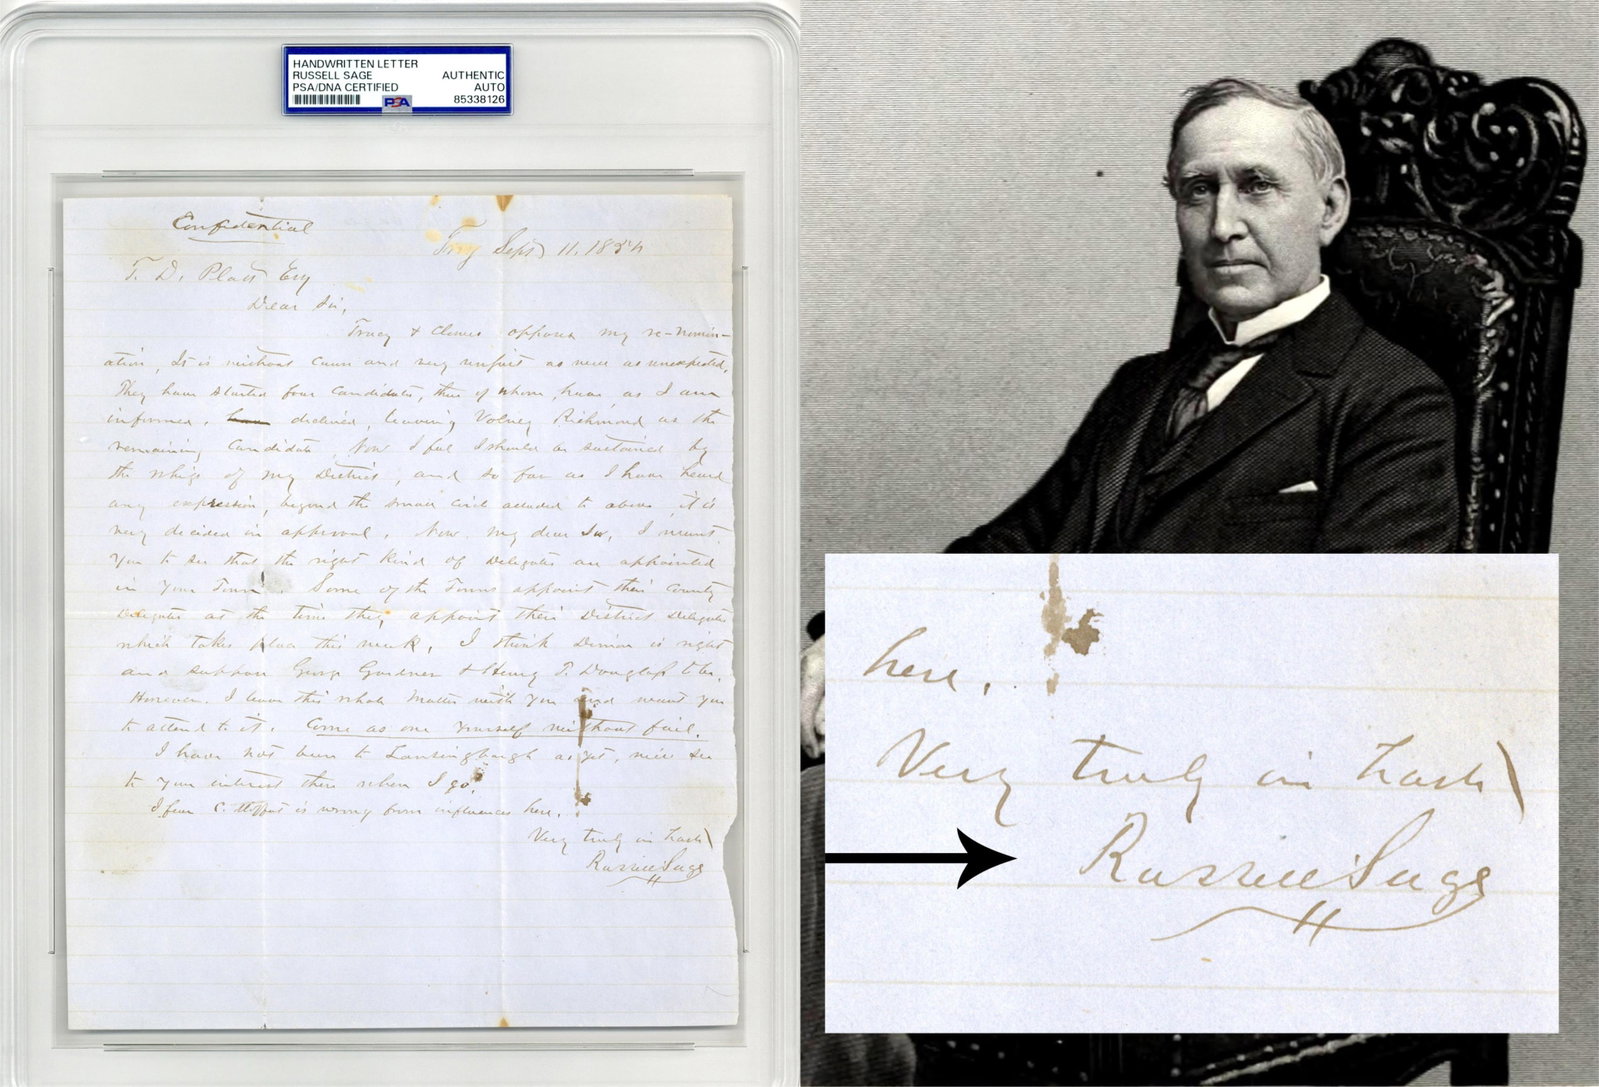 HANDWRITTEN LETTER
RUSSELL SAGE AUTHENTIC
PSA/DNA CERTIFIED AUTO
PSA 85338126
Confidential
Troy Sept 11. 1854
T. D. Platt Esq
Dear Sir,
Tracy & Clowes opposes my re-nomin-
ation, It is without cause and very unjust as well as unexpected,
They have started four candidates, three of whom, have, as I am
informed, declined, leaving Volney Richmond as the
remaining candidate. Now I feel I should be sustained by
the Whigs of my District, and so far as I have heard
any expression, beyond the small circle alluded to above, it is
very decided in approval. Now, my dear Sir, I want
you to see that the right kind of Delegates are appointed
in your Town. Some of the Towns appoint their County
Delegates at the time they appoint their District Delegates
which takes place this week. I think Dimon is right
and support George Gardner & Henry T. Douglass
However, I leave this whole matter with you and want you
to attend to it. Come as one yourself without fail.
I have not been to Lansingburgh as yet, will see
to your interest there when I go.
I fear C. Moffat is wrong from influences here.
Very truly in haste
Russell Sage
here.
Very truly in haste
Russell Sage